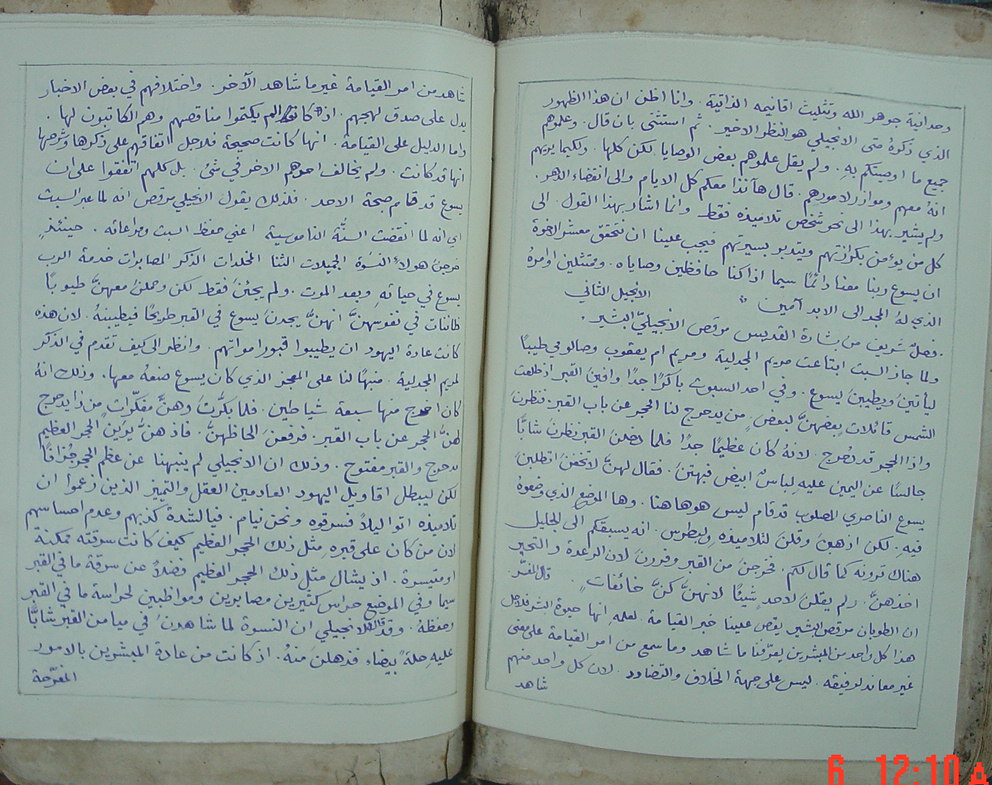 وحدانية جوهر الله وتثليث اقانيمه الذاتية . وانا اظن ان هذا الظهور
الذي ذكرهُ متى الانجيلي هو النظر الاخير . ثم استثنى بان قال . وعلموهم
جميع ما اوصيتكم بهِ . ولم يقل علموهم بعض الوصايا لكن كلها . ولكيما يريهم
انهُ معهم وموازر لامورهم . قال هاَنذا معكم كل الايام والى انقضاء الدهر .
ولم يشير بهذا الى نحو شخص تلاميذه فقط وانما اشار بهذا القول . الى
كل من يوءمن بكرازتهم ويتدبر بسيرتهم فيجب علينا ان نتحقق معشر الاخوة
ان يسوع ربنا معنا دائمًا سيما اذا كنا حافظين وصاياه . وممتثلين اوامرهُ
الذي لهُ المجد الى الابد آمين الانجيل الثاني
فصلٌ شريف من بشارة القديس مرقص الانجيليّ البشير .
ولما جاز السبت ابتاعت مريم المجدلية ومريم ام يعقوب وصالومي طيبًا
لياْتين ويطيبن يسوع . وفي احد السبوت باكرًا جدًا وافين القبر اذ طلعت
الشمس قائلات بعضهنَّ لبعضٍ من يدحرج لنا الحجر عن باب القبر . فنظرن
واذا الحجر قد تدحرج . لانهُ كان عظيمًا جدًا فلما دخلن القبر نظرن شابًا
جالسًا عن اليمين عليهِ لباسٌ ابيض فبهتنَ . فقال لهنَّ لا تخفنَ اتطلبن
يسوع الناصري المصلوب قد قام ليس هو هاهنا . وها الموضع الذي وضعوهُ
فيه . لكن اذهبنَ وقلنَ لتلاميذه ولبطرس . انه يسبقكم الى الجليل
هناك ترونهُ كما قال لكم . فخرجنَ من القبر وفررنَ لان الرعدة والتحير
اخذهنَّ . ولم يقلن لاحدٍ شيئًا لانهنَّ كنَّ خائفات . قال المفسّر
ان الطوبان مرقص البشير يقص علينا خبر القيامة لعلمهِ انها حيوة البشر فلاجل
هذا كل واحد من المبشرين يعرّفنا ما شاهد وما سمع من امر القيامة على معنى
غير معاند لرفيقه . ليس على جهة الخلاف والتضاود . لان كل واحد منهم
شاهد
شاهد من امر القيامة غير ما شاهد الآخر . واختلافهم في بعض الاخبار
يدل على صدق لهجهم . اذ كانوا لم يكتموا مناقصهم وهم الكاتبون لها .
واما الدليل على القيامة . انها كانت صحيحة فلاجل اتفاقهم على ذكرها وشرحها
انها قد كانت . ولم يخالف احدهم الاخر في شئٍ . بل كلهم اتفقوا على ان
يسوع قد قام صبحة الاحد . فلذلك يقول الانجيلي مرقص انه لما عبر السبت
اي انه لما انقضت السنَّة الناموسية اعني حفظ السبت ومراعاته . حينئذٍ
خرجنَ هولاء النسوة الجميلات الثنا المخلدات الذكر المصابرات خدمة الرب
يسوع في حياتهِ وبعد الموت . ولم يجئن فقط لكن وحملنَ معهنَّ طيوبًا
ظانات في نفوسهنَّ انهنَّ يجدن يسوع في القبر طريحًا فيطيبنهُ . لان هذه
كانت عادة اليهود ان يطيبوا قبور امواتهم وانظر الى كيف تقدم في الذكر
لمريم المجدلية . منبهًا لنا على المعجز الذي كان يسوع صنعهُ معها . وذلك انهُ
كان اخرج منها سبعة شياطين . فلما بكّرنَ وهنَّ مفكّراتٍ من ذا يدحرج
لهنَّ الحجر عن باب القبر . فرفعنَ الحاظهنَّ . فاذ هنَّ يرَينَ الحجر العظيم
مدحرج والقبر مفتوح . وذلك ان الانجيلي لم ينبهنا عن عظم الحجر جُزافًا
لكن ليبطل اقاويل اليهود العادمين العقل والتمييز الذين ازعموا ان
تلاميذه اتوا ليلاً فسرقوه ونحن نيام . فيا لشدة كذبهم وعدم احساسهم
لان من كان على قبره مثل ذلك الحجر العظيم كيف كانت سرقته ممكنة
او متيسرة . اذ يشال مثل ذلك الحجر العظيم فضلاً عن سرقة ما في القبر
سيما وفي الموضع حراس كثيرين مصابرين ومواظبين لحراسة ما في القبر
وحفظهُ . الانجيلي ان النسوة لما شاهدنَ في ميامن القبر شابًا
عليه حلةً بيضاء فذهلنَ منهُ . اذ كانت من عادة المبشرين بالامور
المفرّحة
6 12:10 A